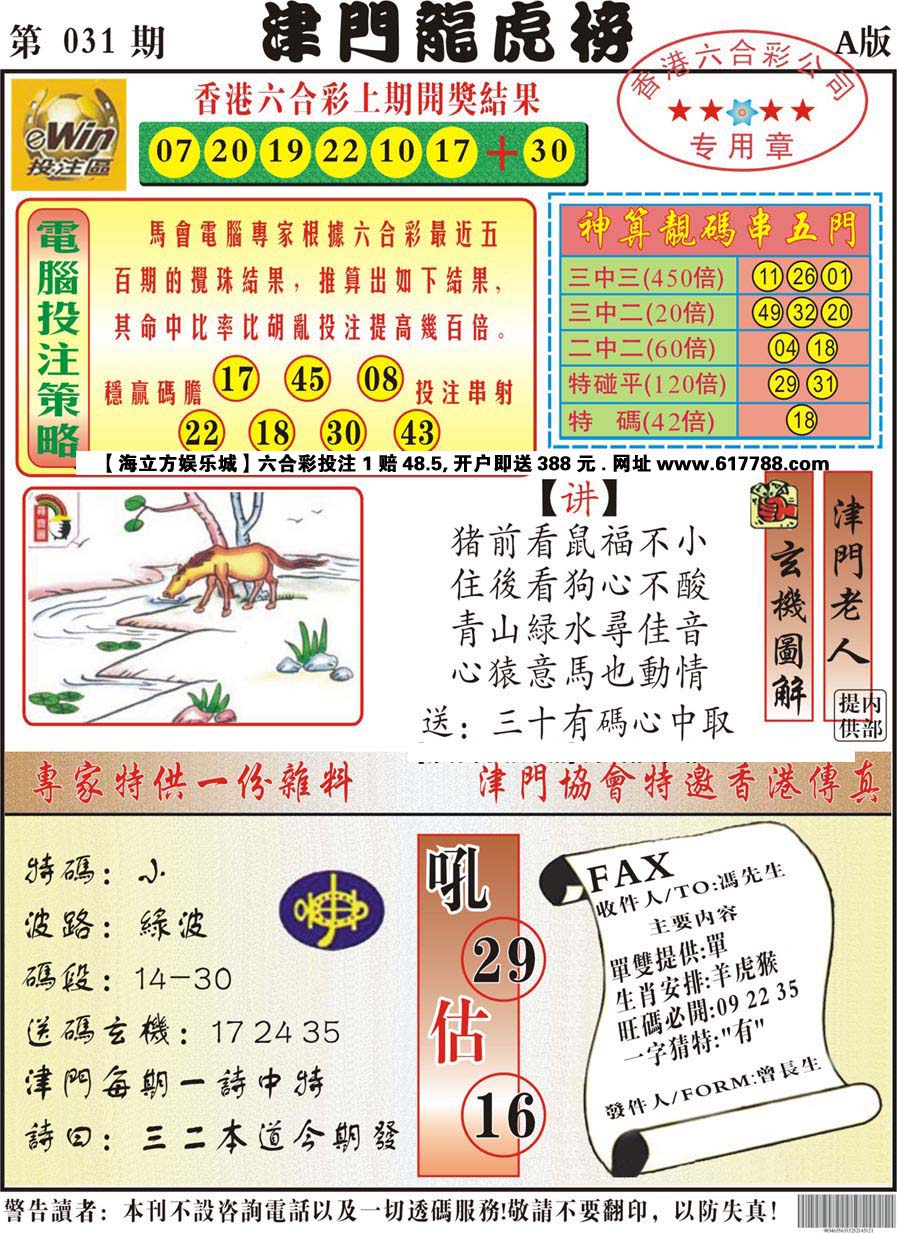 第 031 期
津門龍虎榜
A版
eWin
投注區
香港六合彩上期開獎結果
07 20 19 22 10 17 + 30
香港六合彩公司
专用章
電腦投注策略
馬會電腦專家根據六合彩最近五
百期的攪珠結果，推算出如下結果，
其命中比率比胡亂投注提高幾百倍。
穩贏碼膽 17 45 08 投注串射
22 18 30 43
神算靚碼串五門
三中三(450倍) 11 26 01
三中二(20倍) 49 32 20
二中二(60倍) 04 18
特碰平(120倍) 29 31
特 碼(42倍) 18
【海立方娱乐城】六合彩投注1赔48.5,开户即送388元.网址www.617788.com
尋寶圖
【讲】
猪前看鼠福不小
住後看狗心不酸
青山緑水尋佳音
心猿意馬也動情
送：三十有碼心中取
玄機圖解
津門老人
内部提供
專家特供一份雜料
津門協會特邀香港傳真
特碼：小
波路：綠波
碼段：14-30
送碼玄機：17 24 35
津門每期一詩中特
詩曰：三二本道今期發
吼
29
估
16
FAX
收件人/TO:馮先生
主要内容
單雙提供:單
生肖安排:羊虎猴
旺碼必開:09 22 35
一字猜特:"有"
發件人/FORM:曾長生
警告讀者：本刊不設咨詢電話以及一切透碼服務!敬請不要翻印，以防失真!